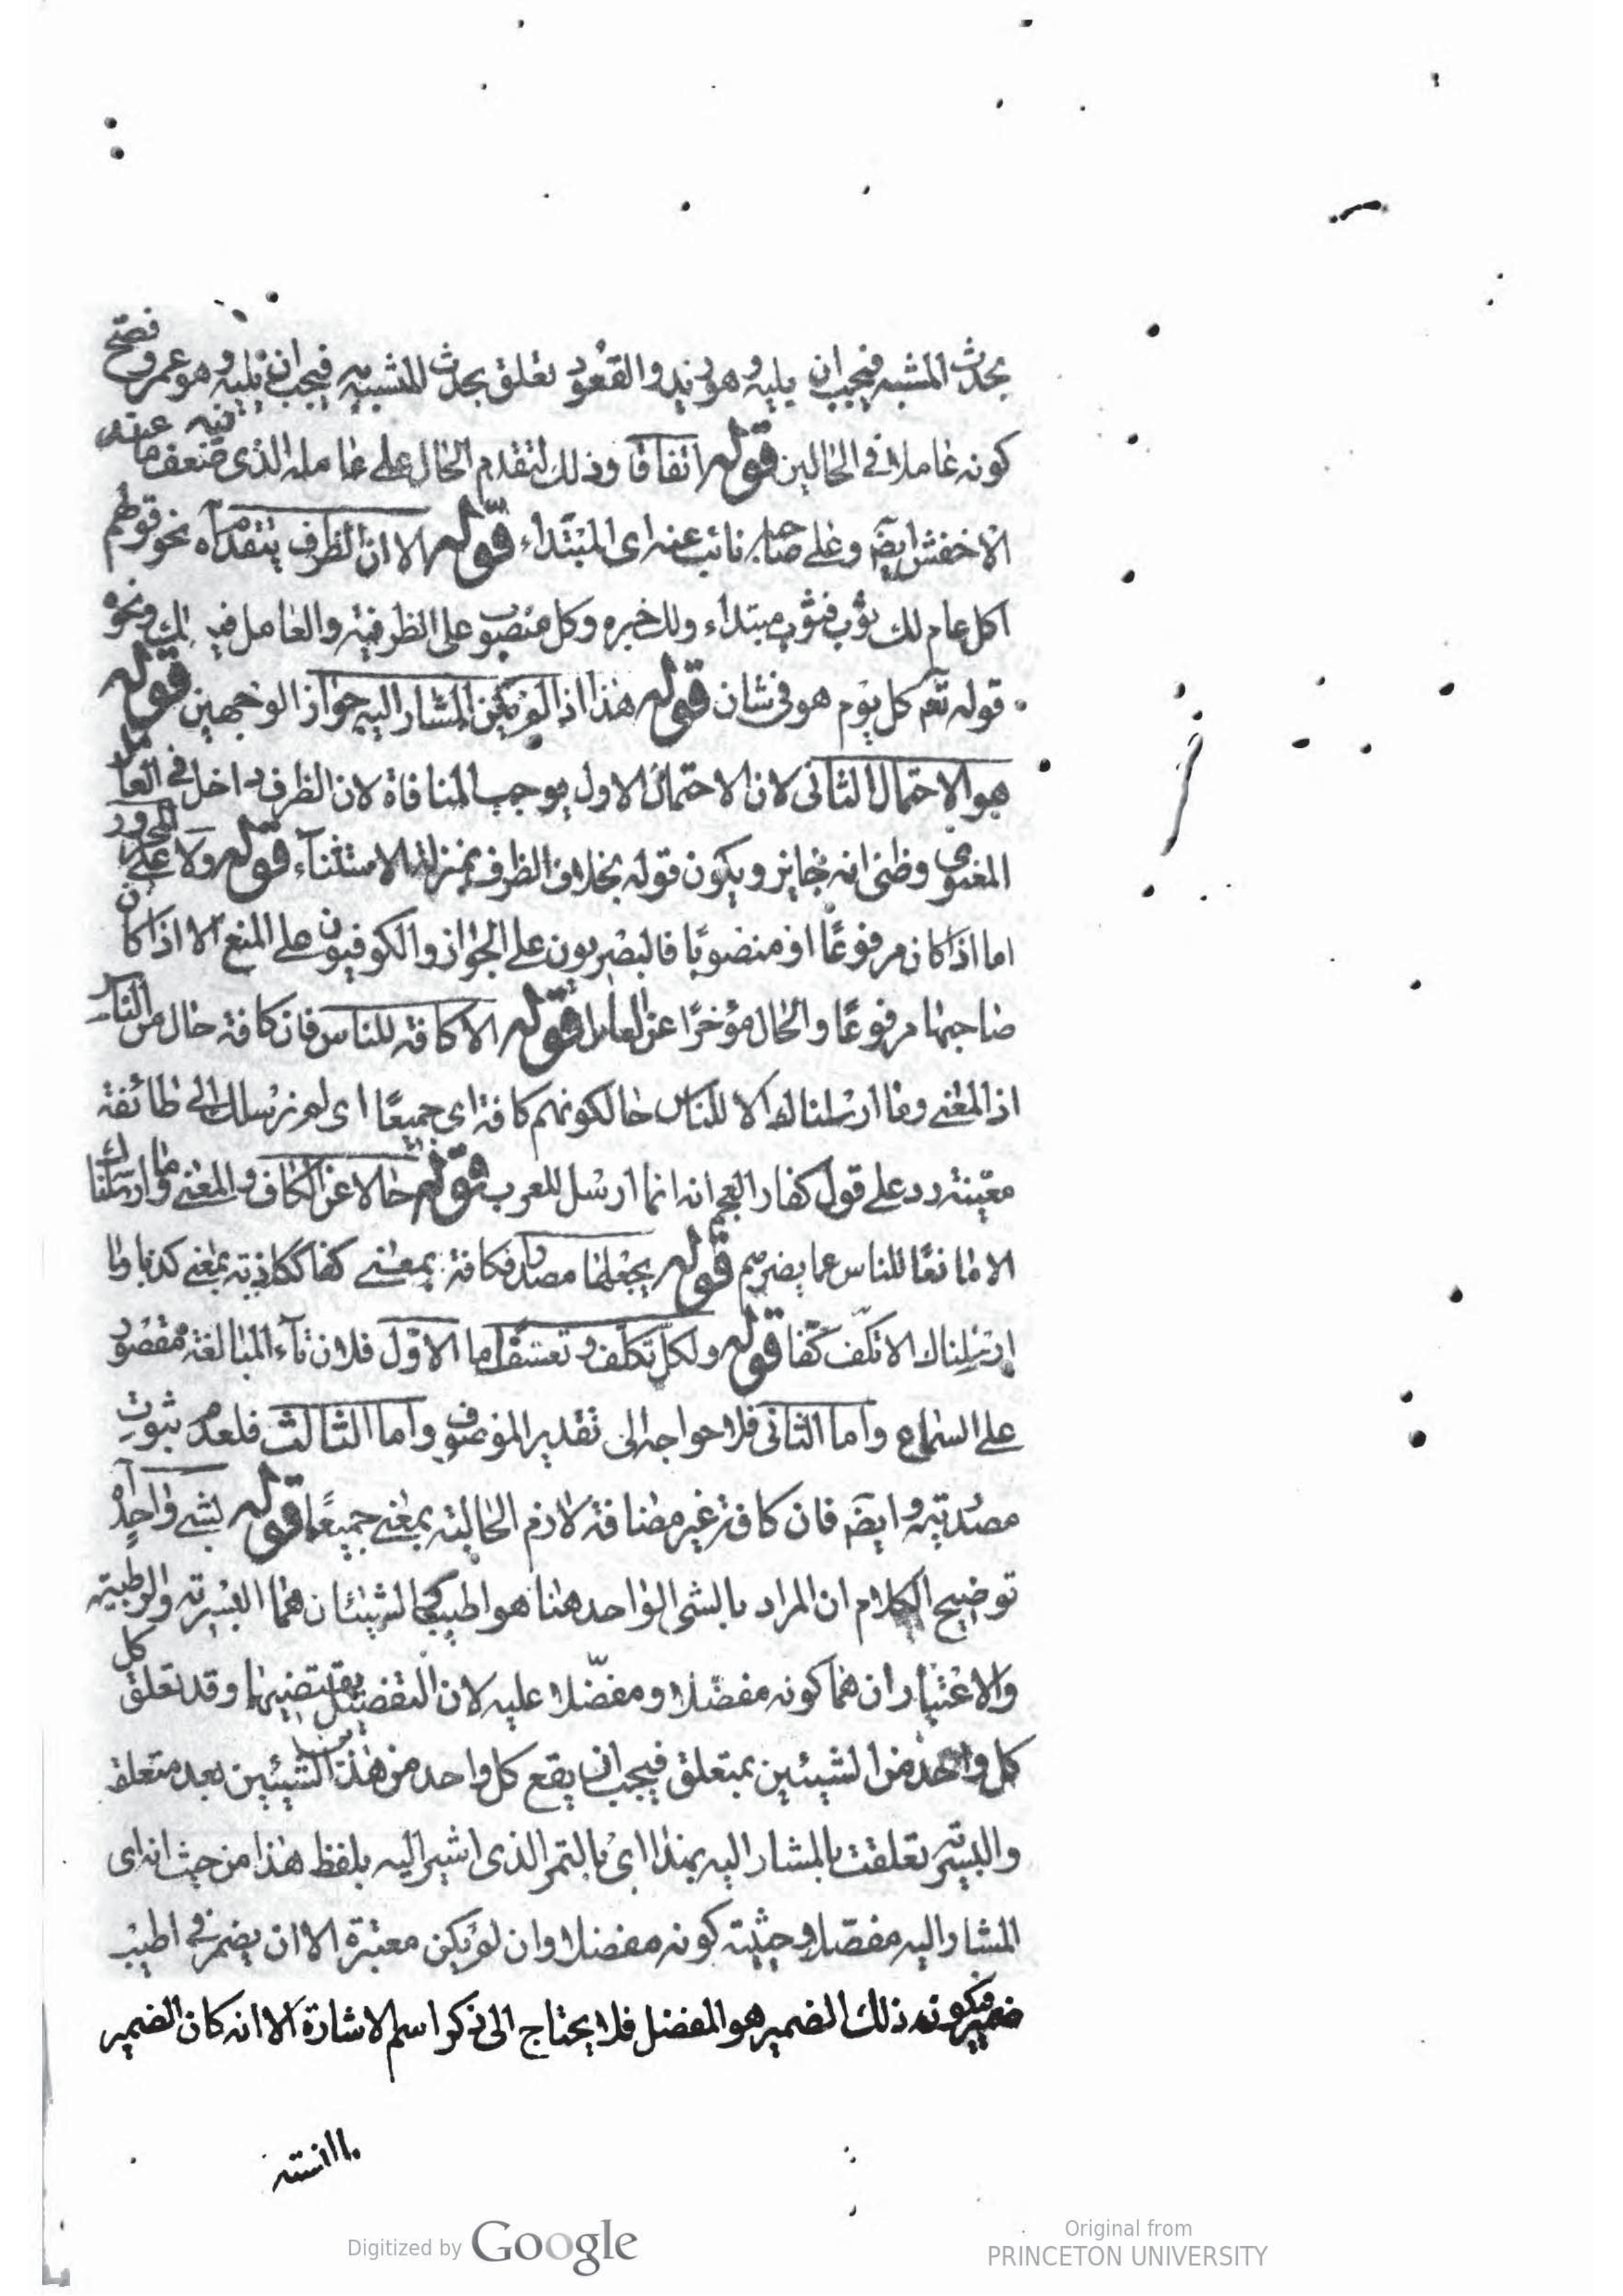 بحدث المشبه فيجب ان يليه وهو زيد والقعود تعلق بحدث المشبه به فيجب ان يليه وهو عمرو فصح
كونه عاملا في الحالين قوله اتفاقا وذلك لتقدم الحال على عامله الذى ضعف ما فيه عنه
الاخفش ايضه وعلى صاحبه نائب عنه اى المبتداء قوله الا ان الظرف يتقدم آه نحو قولهم
اكل عام لك ثوب فثوب مبتداء ولك خبره وكل منصوب على الظرفيه والعامل فيه لك ونحو
قوله تعم كل يوم هو فى شان قوله هذا اذا لم يكن المشار اليه جواز الوجهين قوله
هو الاحتمال الثانى لان الاحتمال الاول يوجب المنافاة لان الظرف داخل فى العامل
المعنوى وظنى انه جايز ويكون قوله بخلاف الظرف بمنزلة الاستثنآء قوله ولا على المجرور
اما اذا كان مرفوعًا او منصوبًا فالبصريون على الجواز والكوفيون على المنع الا اذا كان
صاحبها مرفوعًا والحال مؤخرًا عن العامل قوله الا كافة للناس فان كافة حال من الناس
اذ المعنى وما ارسلناك الا للناس حالكونهم كافة اى جميعًا اى لم نرسلك الى طائفة
معينة رد على قول كفار العجم انه انما ارسل للعرب قوله حالا عن الكاف والمعنى وما ارسلناك
الا مانعًا للناس عما يضرهم قوله بجعلها مصدرا فكافة بمعنى كفا ككاذبة بمعنى كذبا وما
ارسلناك الا تكف كفّا قوله ولكل تكلّف وتعسّف اما الاوّل فلان تآء المبالغة مقصور
على السماع واما الثانى فلاحواجه الى تقدير الموصوف واما الثالث فلعدم ثبوت
مصدريته وايضه فان كافة غير مضافة لازم الحالية بمعنى جميعًا قوله لشىء واحد آه
توضيح الكلام ان المراد بالشى الواحد هنا هو اطيب والشيئان هما البسرية والرطبية
والاعتباران هما كونه مفضلا ومفضّلا عليه لان التفضيل يقتضيهما وقد تعلق كل
كل واحد من الشيئين بمتعلق فيجب ان يقع كل واحد من هذين الشيئين بعد متعلقه
والبسرية تعلقت بالمشار اليه بهذا اى بالتمر الذى اشير اليه بلفظ هذا من حيث انه اى
المشار اليه مفضّل وحيثية كونه مفضلا وان لم يكن معتبرة الا ان يضمر فى اطيب
ضميره فيكون ذلك الضمير هو المفضل فلا يحتاج الى ذكر اسم الاشارة الا انه كان الضمير
Digitized by Google
Original from
PRINCETON UNIVERSITY